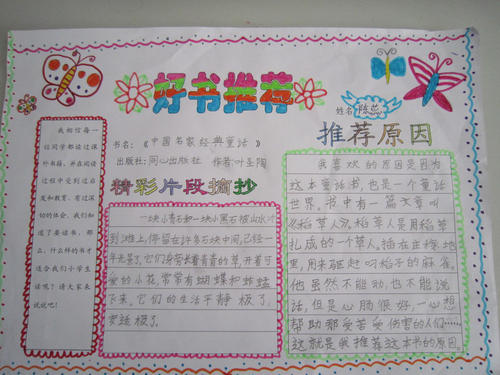 好书推荐
姓名：陈蕊
我相信每一
位同学都读过课
外书籍，并在阅读
过程中受到过启
发和教育，有过深
切的体会。我们知
道了要读书，那
么，什么样的书才
适合我们小学生
读呢？请大家来
说说吧！
书名：《中国名家经典童话》
出版社：同心出版社 作者：叶圣陶
精彩片段摘抄
一块小青石和一块小黑石被山水冲
到滩上，停留在许多石块中间，已经一
年光景了。它们身旁长着青青的草，开着可
爱的小花，常常有蝴蝶和蜻蜓
下来。它们的生活平静极了，
安适极了。
推荐原因
我喜欢的原因是因为
这本童话书，也是一个童话
世界，书中有一篇文章叫
《稻草人》。稻草人是用稻草
扎成的一个草人，插在庄稼地
里，用来驱赶叼稻子的麻雀。
他虽然不能动，也不能说
话，但是心肠很好，一心想
帮助那受苦受伤害的人们……
这就是我推荐这本书的原因